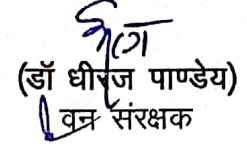 (डॉ धीरज पाण्डेय)
वन संरक्षक